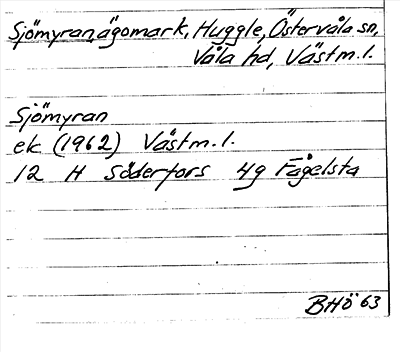 Sjömyran, ägomark, Huggle, Östervåla sn,
Våla hd, Västm.l.
Sjömyran
ek (1962) Västm.l.
12 H Söderfors 4g Fågelsta
BHÖ 63